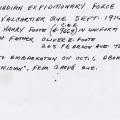 ADIAN EXPEDITIONARY FORCE
VALCARTIER QUE. SEPT. 191
HARRY FOOTE IN UNIFORM
FATHER OLIVER E. FOOTE
208 PEARSON AVE
EMBARKATION ON OCT. 1, ABOA
", FROM GASPÉ QUE.